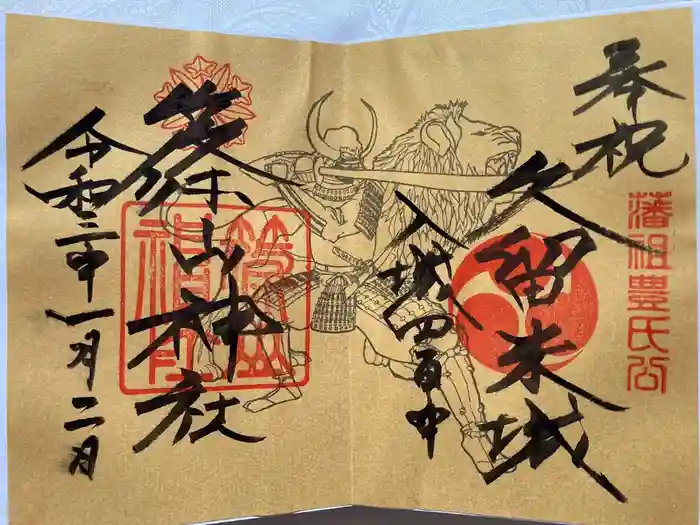 奉祝
藩祖豊氏公
久留米城
入城四百年
篠山神社
令和三年一月二日